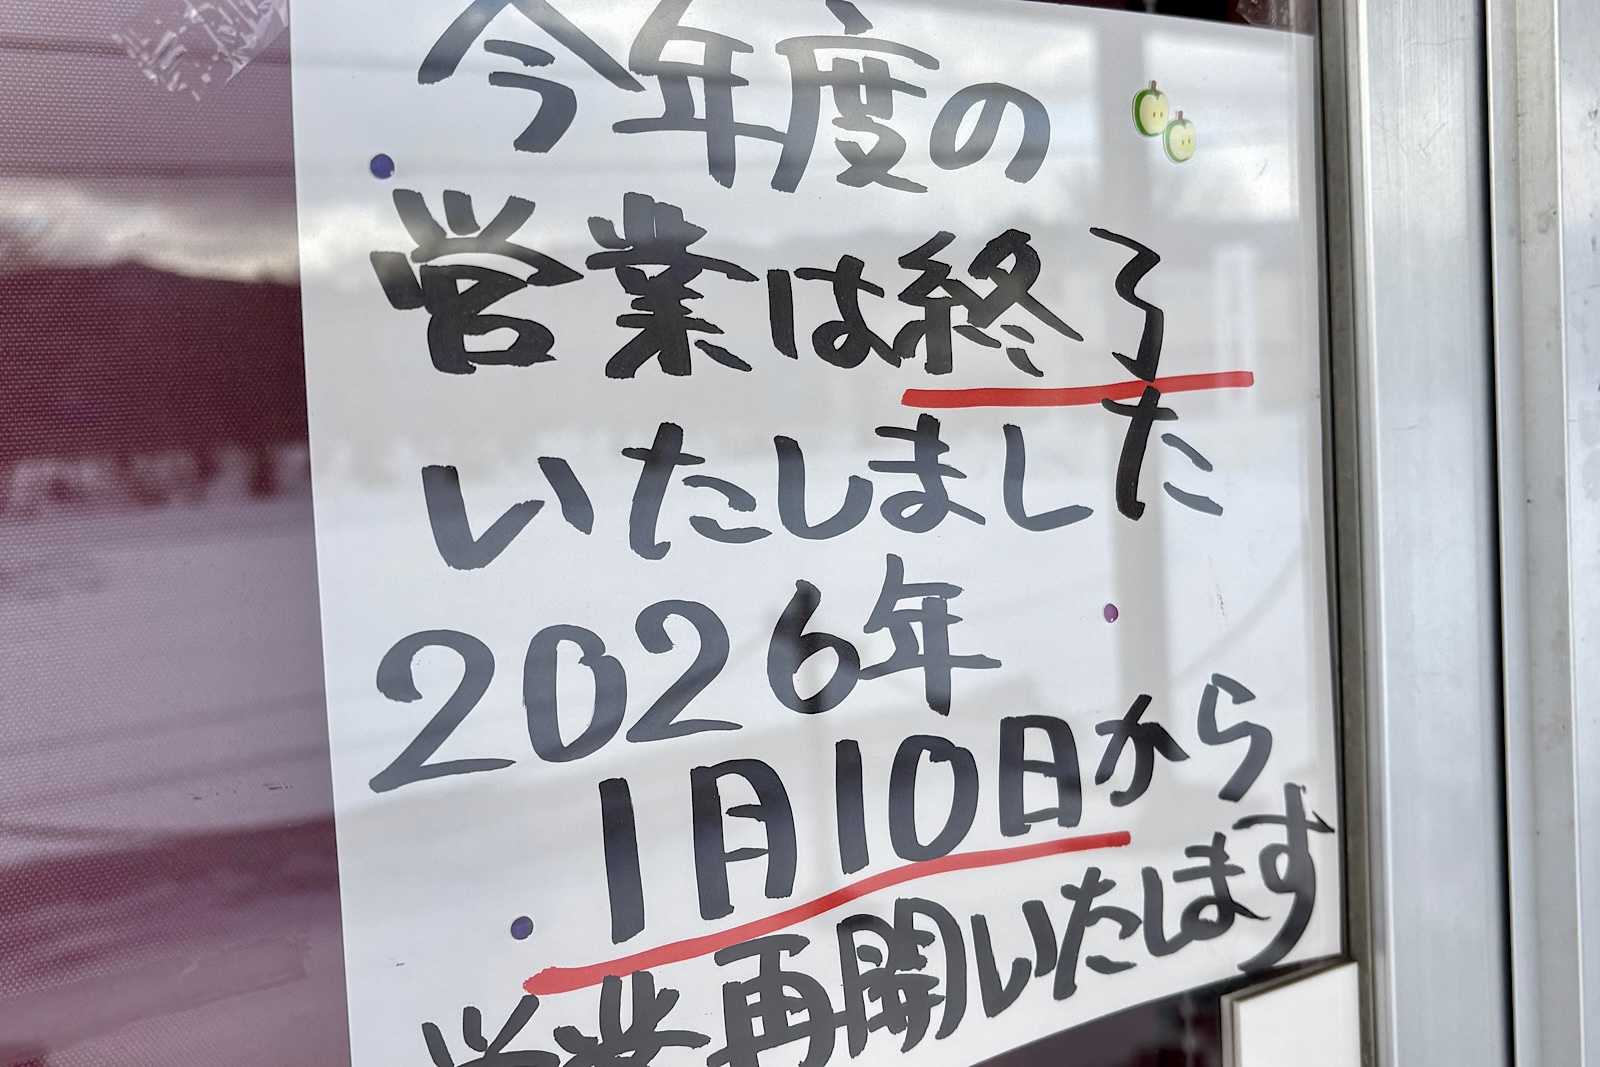 今年度の
営業は終了
いたしました
2026年
1月10日から
営業再開いたします